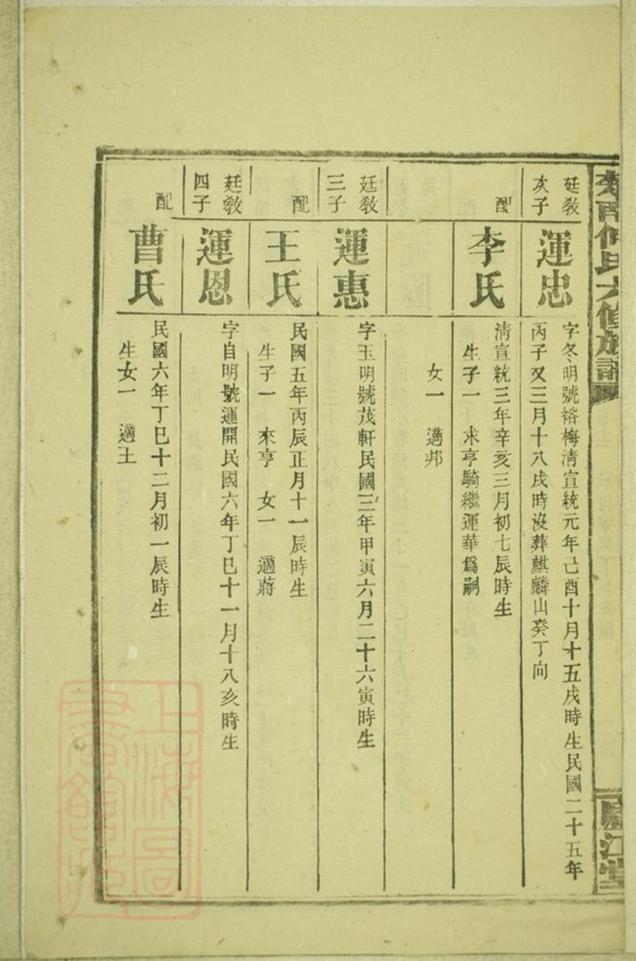 何氏六修族譜
廬江堂
廷敎
次子
運忠
字冬明號榕梅清宣統元年己酉十月十五戌時生民國二十五年
丙子又三月十八戌時沒葬麒麟山癸丁向
配
李氏
清宣統三年辛亥三月初七辰時生
生子一　求亨騎繼運華爲嗣
女一　適邦
廷敎
三子
運惠
字玉明號茂軒民國三年甲寅六月二十六寅時生
配
王氏
民國五年丙辰正月十一辰時生
生子一　來亨　女一　適蔣
廷敎
四子
運恩
字自明號運開民國六年丁巳十一月十八亥時生
配
曹氏
民國六年丁巳十二月初一辰時生
生女一　適王
上海圖書館藏